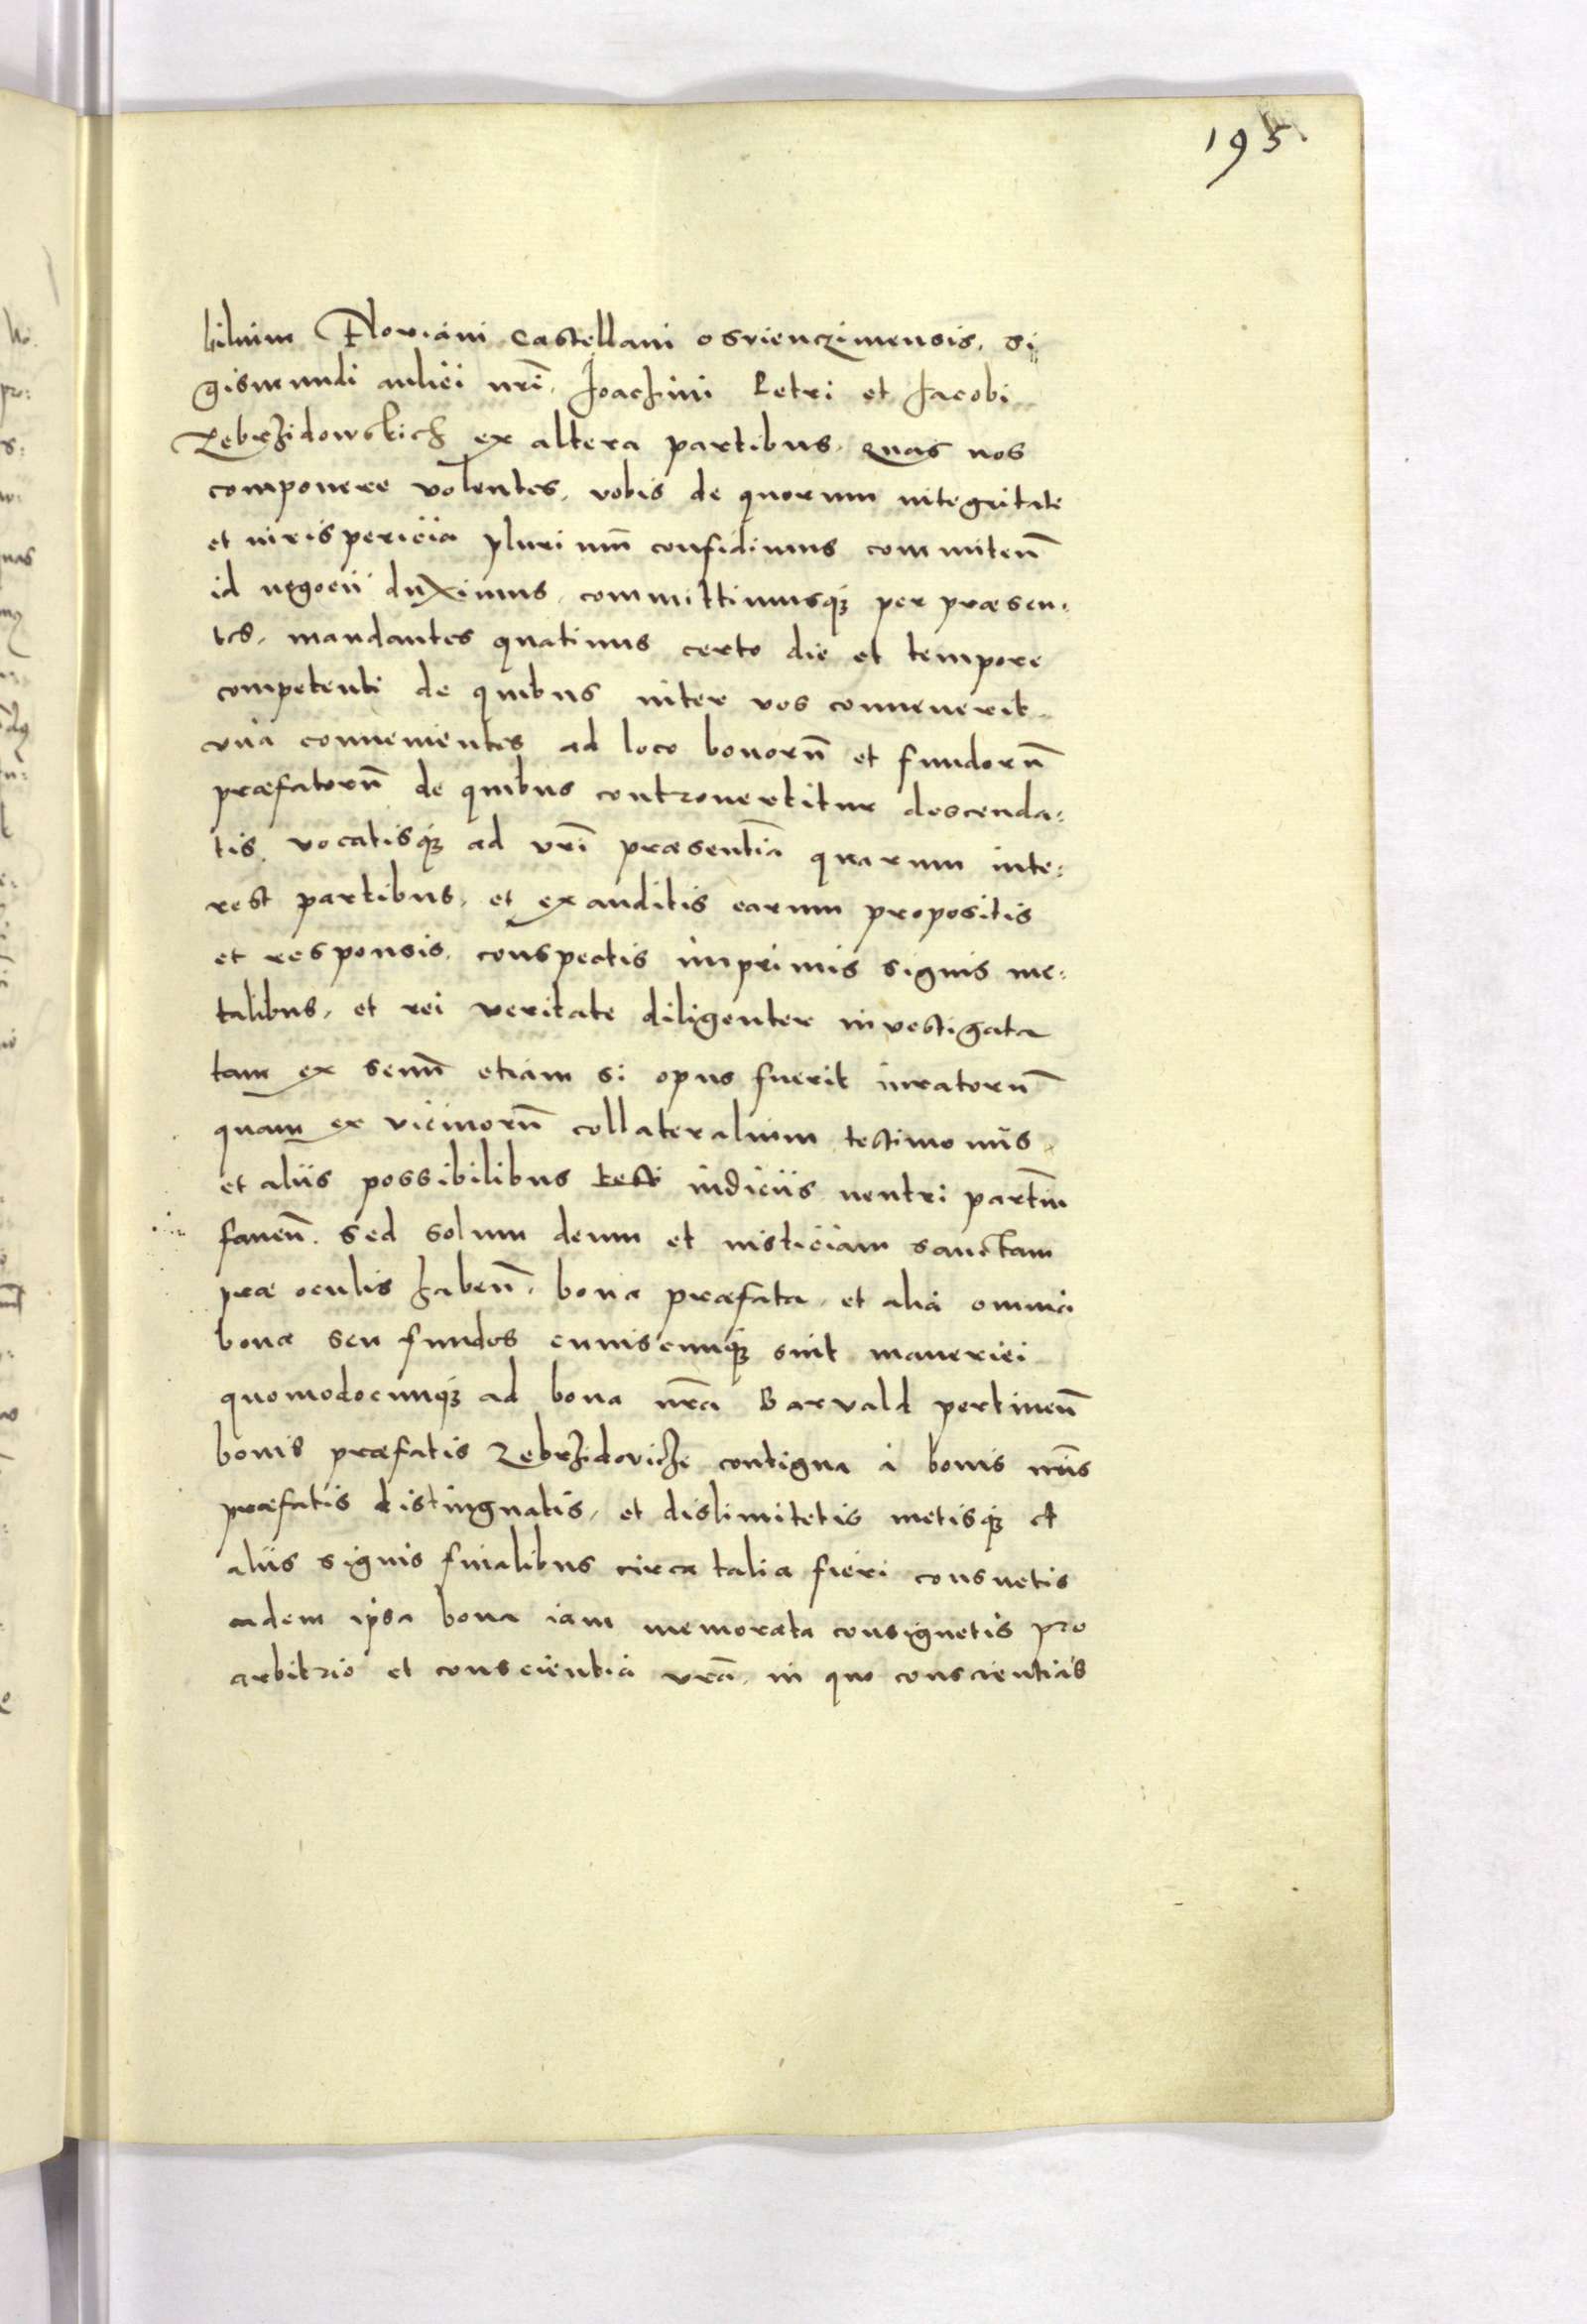 195
bilium Floriani Castellani osvienczimensis. Si
gismundi aulici nr̃i. Joachimi Petri et Jacobi
Zebrzidowskich ex altera partibus. quas nos
componere volentes. vobis de quorum integritate
et iurisperitia plurimũ confidimus commitenᷠ
id negocii duximus. committimusqꝫ per præsen:
tes. mandantes quatinus certo die et tempore
competenti de quibus inter vos convenerit
una convenientes ad loco bonorũ et fundorũ
præfatorũ de quibus controvertitur descenda:
tis. vocatisqꝫ ad vr̃i præsentiã quarum inte:
rest partibus. et exauditis earum propositis
et responsis. conspectis imprimis signis me:
talibus. et rei veritate diligenter investigata
tam ex senũ etiam si opus fuerit iuratorũ
quam ex vicinorũ collateralium testimoniis
et aliis possibilibus testi indiciis neutri partiũ
faveñ. sed solum deum et iusticiam sanctam
præ oculis habeñ. bona præfata. et alia omnia
bona seu fundos cuiuscunqꝫ sint maneriei
quomodocunqꝫ ad bona nr̃a Barvald pertineñ
bonis præfatis Zebrzidovicze contigua a bonis nr̃is
præfatis distinguatis. et dislimitetis metisqꝫ et
aliis signis finalibus circa talia fieri consuetis
eadem ipsa bona iam memorata consignetis pro
arbitrio et conscientia vr̃a. in quo conscientias